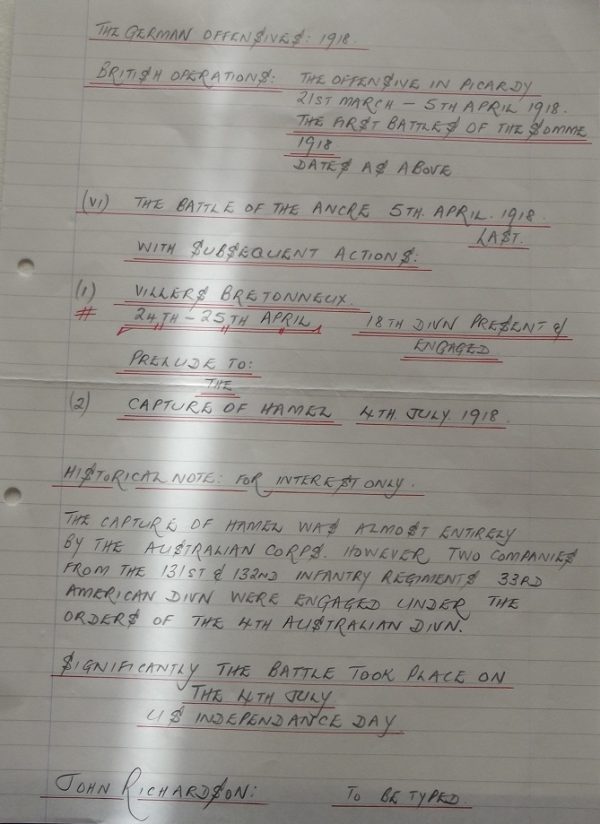 THE GERMAN OFFENSIVES: 1918.
BRITISH OPERATIONS: THE OFFENSIVE IN PICARDY
21ST MARCH - 5TH APRIL 1918.
THE FIRST BATTLES OF THE SOMME
1918
DATES AS ABOVE
(VI) THE BATTLE OF THE ANCRE 5TH. APRIL. 1918.
LAST.
WITH SUBSEQUENT ACTIONS:
(1) VILLERS BRETONNEUX.
# 24TH - 25TH APRIL 18TH DIVN PRESENT &
ENGAGED
PRELUDE TO:
THE
(2) CAPTURE OF HAMEL 4TH. JULY. 1918.
HISTORICAL NOTE: FOR INTEREST ONLY.
THE CAPTURE OF HAMEL WAS ALMOST ENTIRELY
BY THE AUSTRALIAN CORPS. HOWEVER TWO COMPANIES
FROM THE 131ST & 132ND INFANTRY REGIMENTS 33RD
AMERICAN DIVN WERE ENGAGED UNDER THE
ORDERS OF THE 4TH AUSTRALIAN DIVN.
SIGNIFICANTLY THE BATTLE TOOK PLACE ON
THE 4TH JULY
US INDEPENDANCE DAY
JOHN RICHARDSON: TO BE TYPED